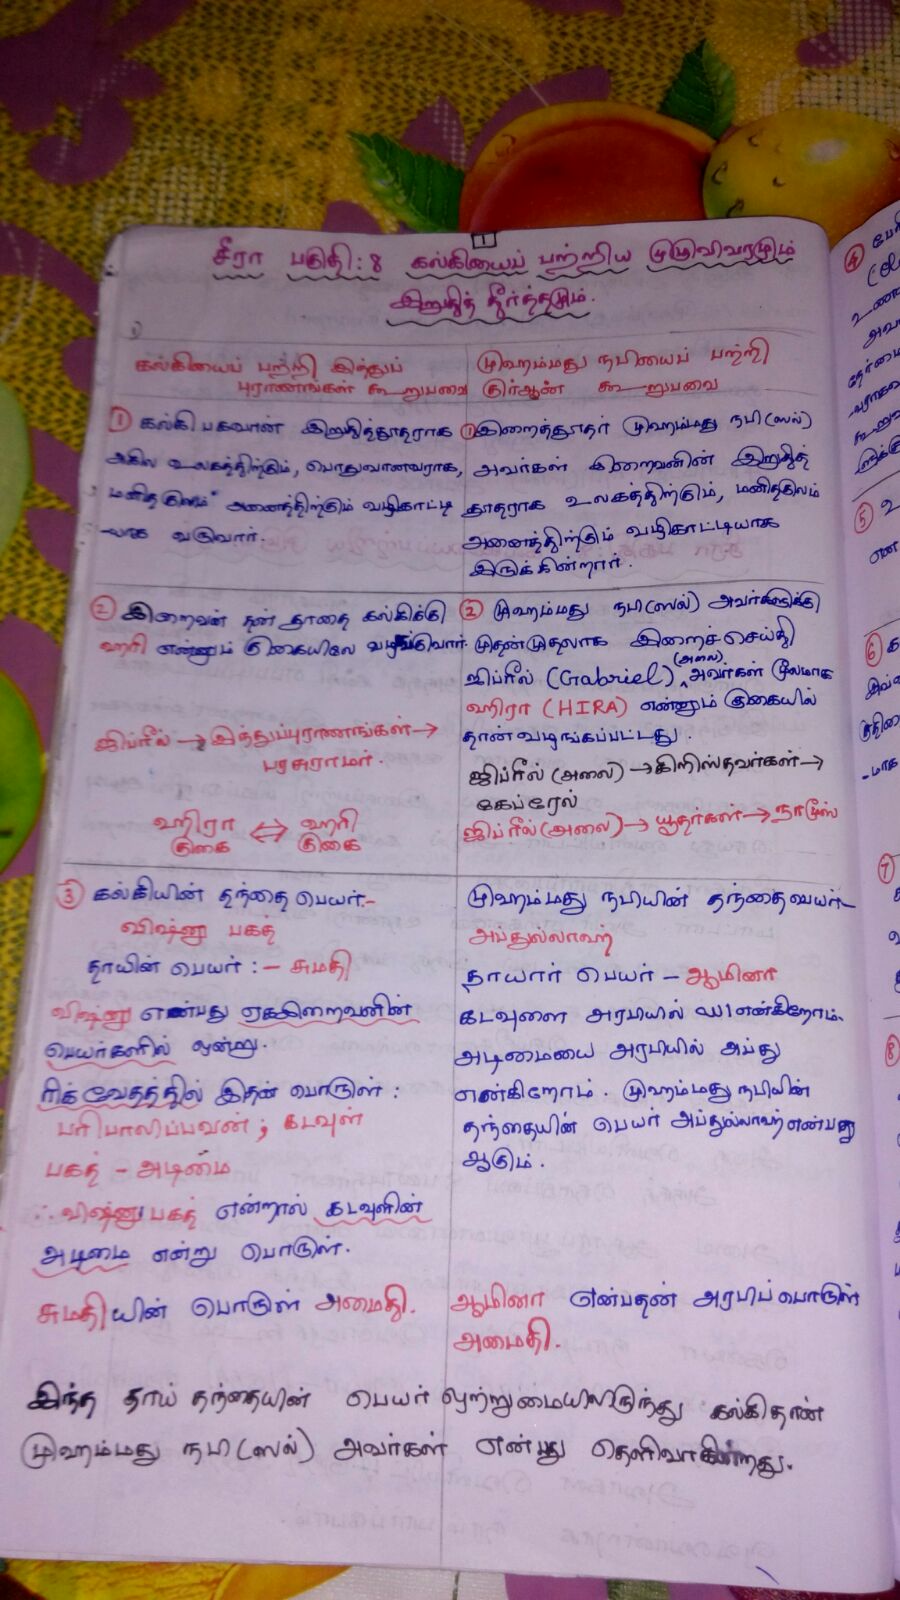 1
சீரா பகுதி: 8 கல்கியைப் பற்றிய முழுவிவரமும்
இறுதித் தீர்த்தமும்.
கல்கியைப் பற்றி இந்துப்
புராணங்கள் கூறுபவை
முஹம்மது நபியைப் பற்றி
குர்ஆன் கூறுபவை
① கல்கி பகவான் இறுதித்தூதராக
அகில உலகத்திற்கும், பொதுவானவராக,
மனிதகுலம் அனைத்திற்கும் வழிகாட்டி
-யாக வருவார்.
① இறைத்தூதர் முஹம்மது நபி(ஸல்)
அவர்கள் இறைவனின் இறுதித்
தூதராக உலகத்திற்கும், மனிதகுலம்
அனைத்திற்கும் வழிகாட்டியாக
இருக்கின்றார்.
② இறைவன் தன் தூதை கல்கிக்கு
ஹரி என்னும் குகையிலே வழங்குவார்.
ஜிப்ரீல் → இந்துப்புராணங்கள் →
பரசுராமர்.
ஹிரா ⟷ ஹரி
குகை குகை
② முஹம்மது நபி(ஸல்) அவர்களுக்கு
முதன்முதலாக இறைச்செய்தி
ஜிப்ரீல் (Gabriel) (அலை) அவர்கள் மூலமாக
ஹிரா (HIRA) என்னும் குகையில்
தான் வழங்கப்பட்டது.
ஜிப்ரீல் (அலை) → கிறிஸ்தவர்கள் →
கேப்ரேல்
ஜிப்ரீல்(அலை) → யூதர்கள் → நாமூஸ்
③ கல்கியின் தந்தை பெயர்-
விஷ்ணு பகத்
தாயின் பெயர் :- சுமதி
விஷ்ணு என்பது ஏகஇறைவனின்
பெயர்களில் ஒன்று.
ரிக் வேதத்தில் இதன் பொருள் :
பரிபாலிப்பவன் ; கடவுள்
பகத் - அடிமை
∴ விஷ்ணு பகத் என்றால் கடவுளின்
அடிமை என்று பொருள்.
சுமதியின் பொருள் அமைதி.
முஹம்மது நபியின் தந்தைபெயர்-
அப்துல்லாஹ்
தாயார் பெயர் - ஆமினா
கடவுளை அரபியில் என்கிறோம்.
அடிமையை அரபியில் அப்து
என்கிறோம். முஹம்மது நபியின்
தந்தையின் பெயர் அப்துல்லாஹ் என்பது
ஆகும்.
ஆமினா என்பதன் அரபிப் பொருள்
அமைதி.
இந்த தாய் தந்தையின் பெயர் ஒற்றுமையிலிருந்து கல்கிதான்
முஹம்மது நபி(ஸல்) அவர்கள் என்பது தெளிவாகின்றது.
④
⑤
⑥
⑦
⑧